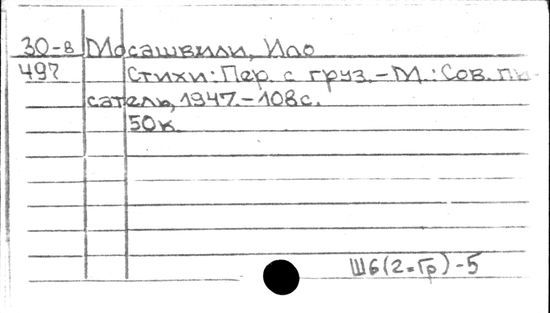 30-в Мосашвили, Ило
497 Стихи: Пер. с груз. – М.: Сов. пи-
сатель, 1947. – 108 с.
50 к.
Ш6(2=Гр)-5